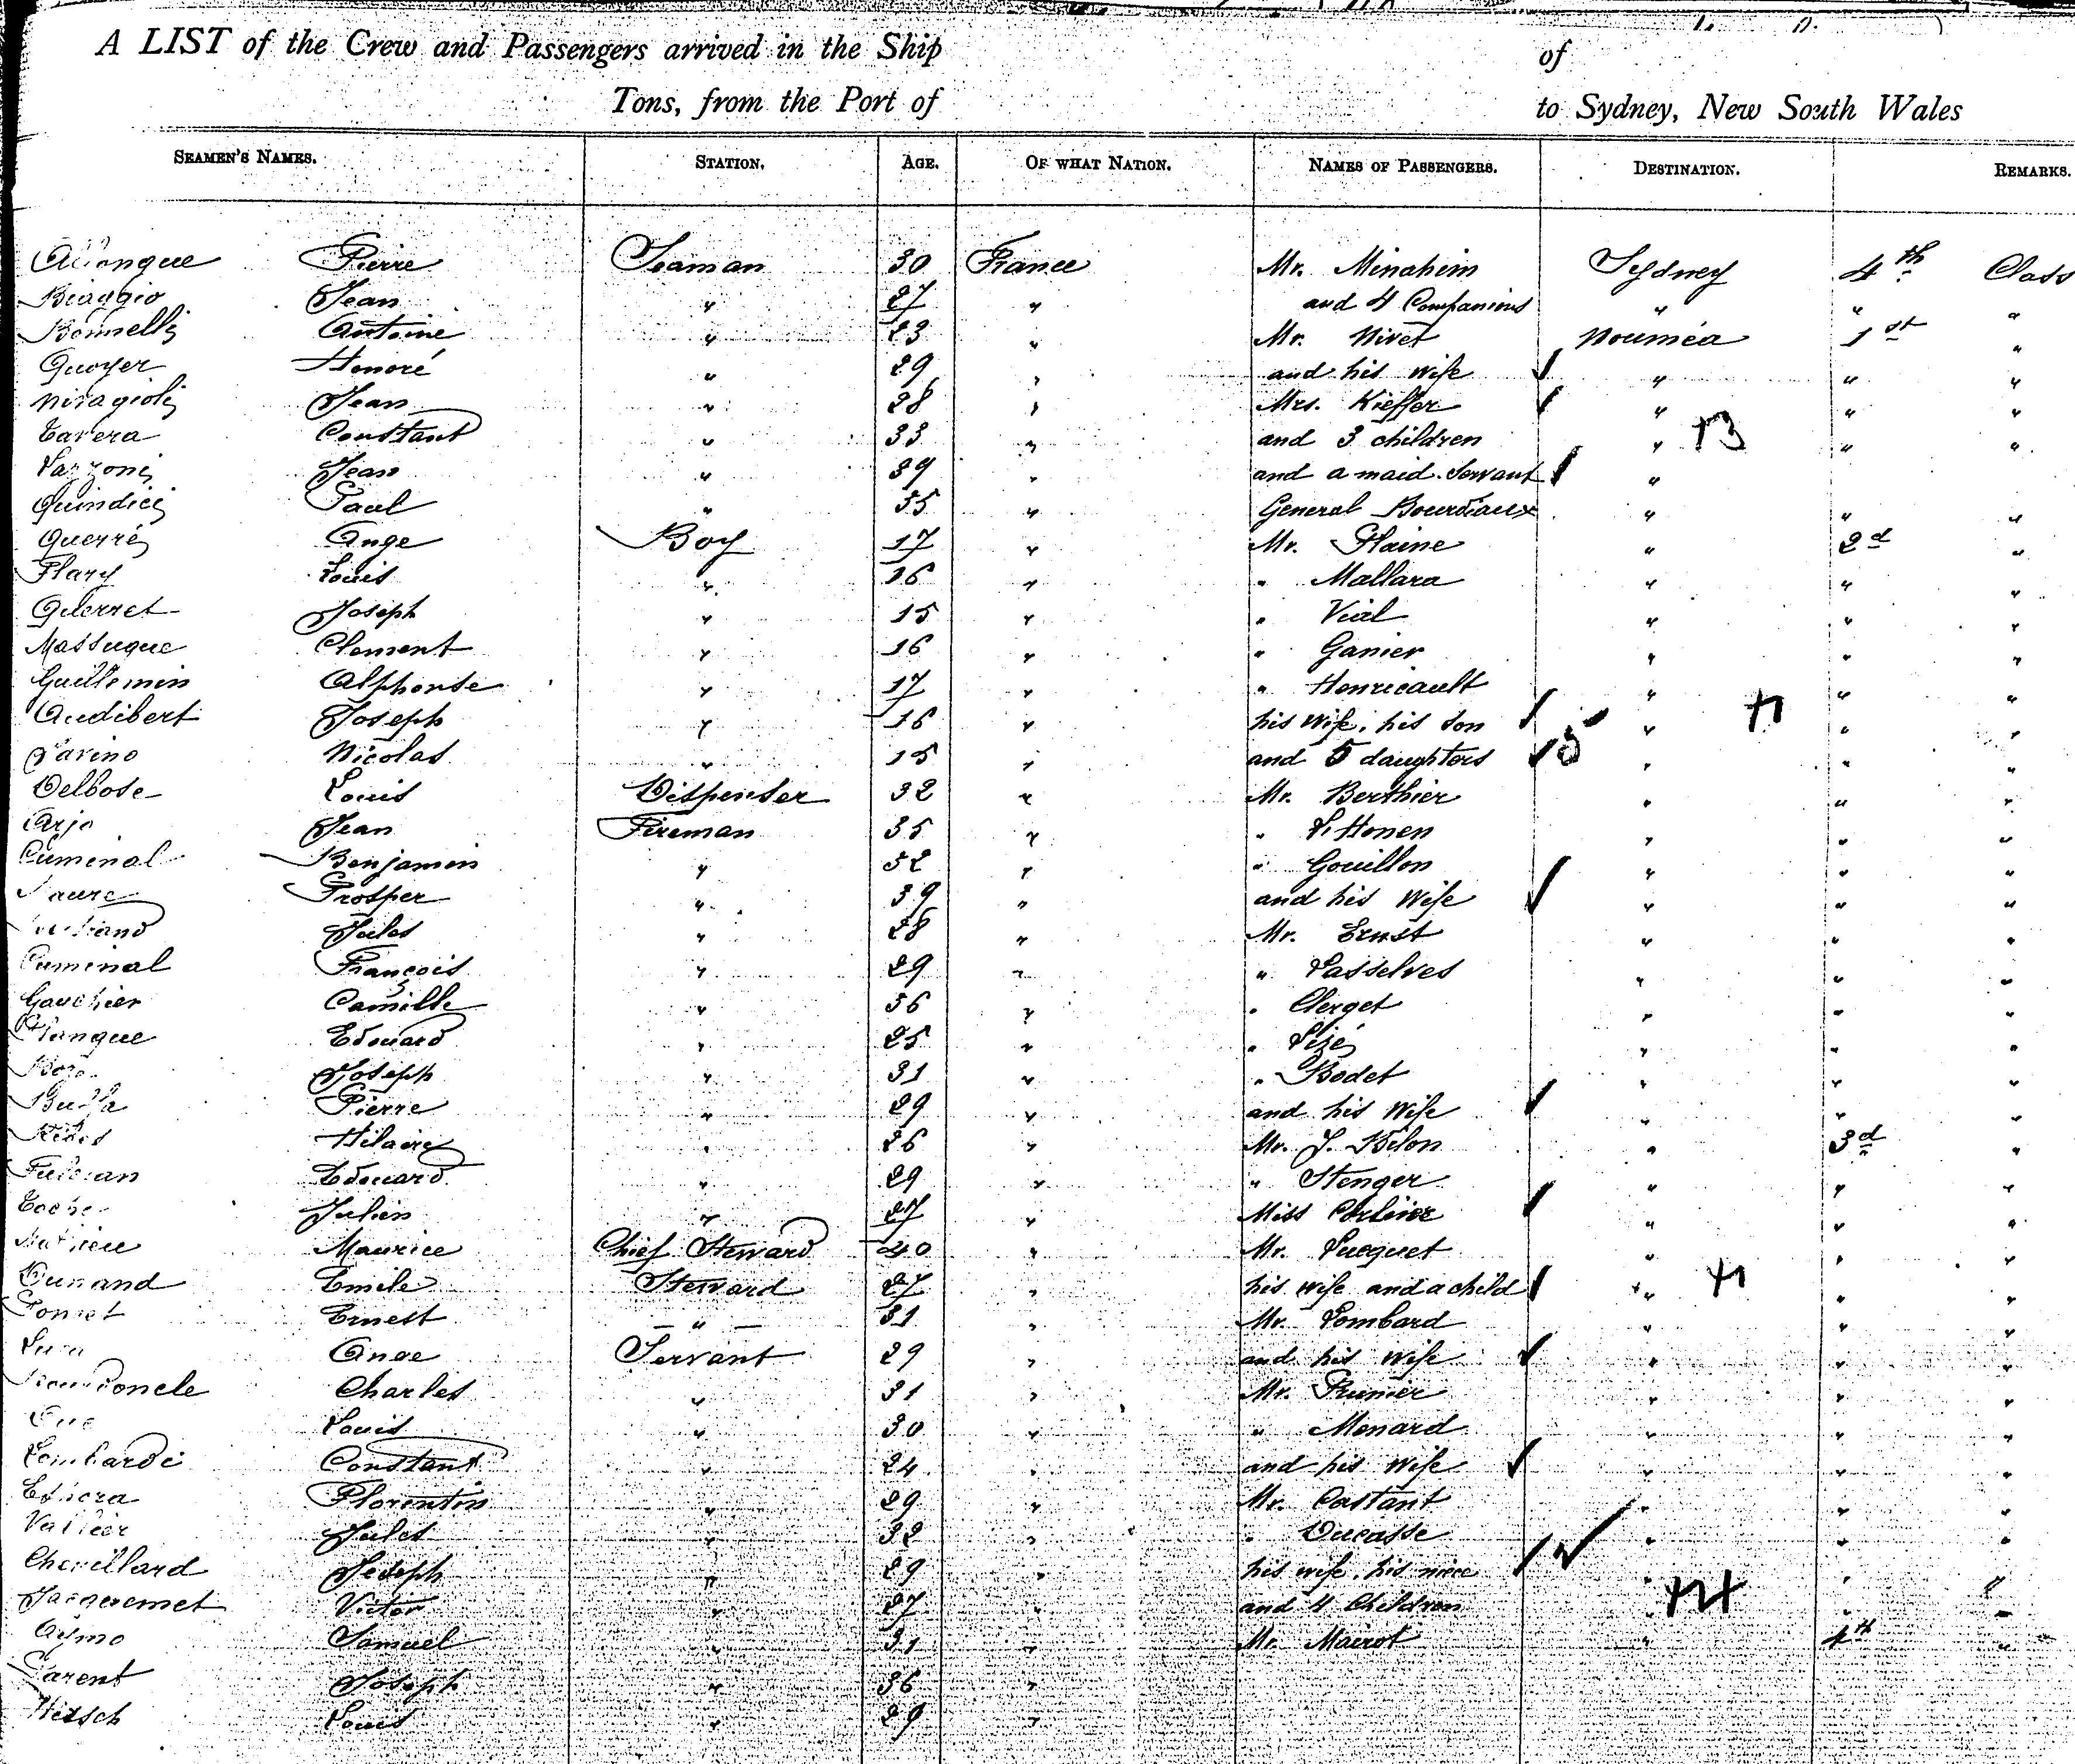 A LIST of the Crew and Passengers arrived in the Ship of
Tons, from the Port of to Sydney, New South Wales
SEAMEN'S NAMES. STATION. AGE. OF WHAT NATION. NAMES OF PASSENGERS. DESTINATION. REMARKS.
Pierre Seaman 30 France Mr. Minahim Sydney 4th Class
Biaggio Jean " 27 " and 4 Companions " " "
Bonnelli Antoine " 23 " Mr. Nivet Nouméa 1st "
Guoyer Honoré " 29 " and his wife " " "
Niragioli Jean " 28 " Mrs. Kieffer " " "
Tavera Constant " 33 " and 3 children " " "
Varzoni Jean " 39 " and a maid Servant "
Quindici Paul " 35 " General Bourdiaux " " "
Querré Ange Boy 17 " Mr. Plaine " 2d "
Flary Louis " 16 " " Mallara " " "
Joseph " 15 " " Vial " " "
Massuque Clement " 16 " " Ganier " " "
Guillemin Alphonse " 17 " " Henricault " " "
Audibert Joseph " 16 " his wife, his son " " "
Savino Nicolas " 15 " and 5 daughters " " "
Delbose Louis Dispenser 32 " Mr. Berthier " " "
Arjo Jean Fireman 35 " " " " "
Cuminal Benjamin " 52 " " Gouillon " " "
Faure Prosper " 39 " and his wife " " "
Jules " 28 " Mr. Ernst " " "
Cuminal François " 29 " " Lasselves " " "
Gauchier Camille " 36 " " Clerget " " "
Edouard " 25 " " Lizé " " "
Joseph " 31 " " Bodet " " "
Pierre " 29 " and his wife " " "
Hilaire " 26 " Mr. J. Bilon " 3d "
Edouard " 29 " " Stenger " " "
Julien " 27 " Miss " " "
Mathieu Maurice Chief Steward 40 " Mr. Lucquet " " "
Dunand Emile Steward 27 " his wife and a child " " "
Ernest " 31 " Mr. Lombard " " "
Ange Servant 29 " and his wife " " "
Charles " 31 " Mr. Prunier " " "
Louis " 30 " " Menard " " "
Lombardi Constant " 24 " and his wife " " "
Florentin " 29 " Mr. Castant " " "
Vallier Jules " 32 " " Ducasse " " "
Chevillard Joseph " 29 " his wife, his niece " " "
Jacquemet Victor " 27 " and 4 Children " " "
Aymo Samuel " 31 " Mr. Mairot " 4th "
Parent Joseph " 36 "
Hirsch Louis " 29 "